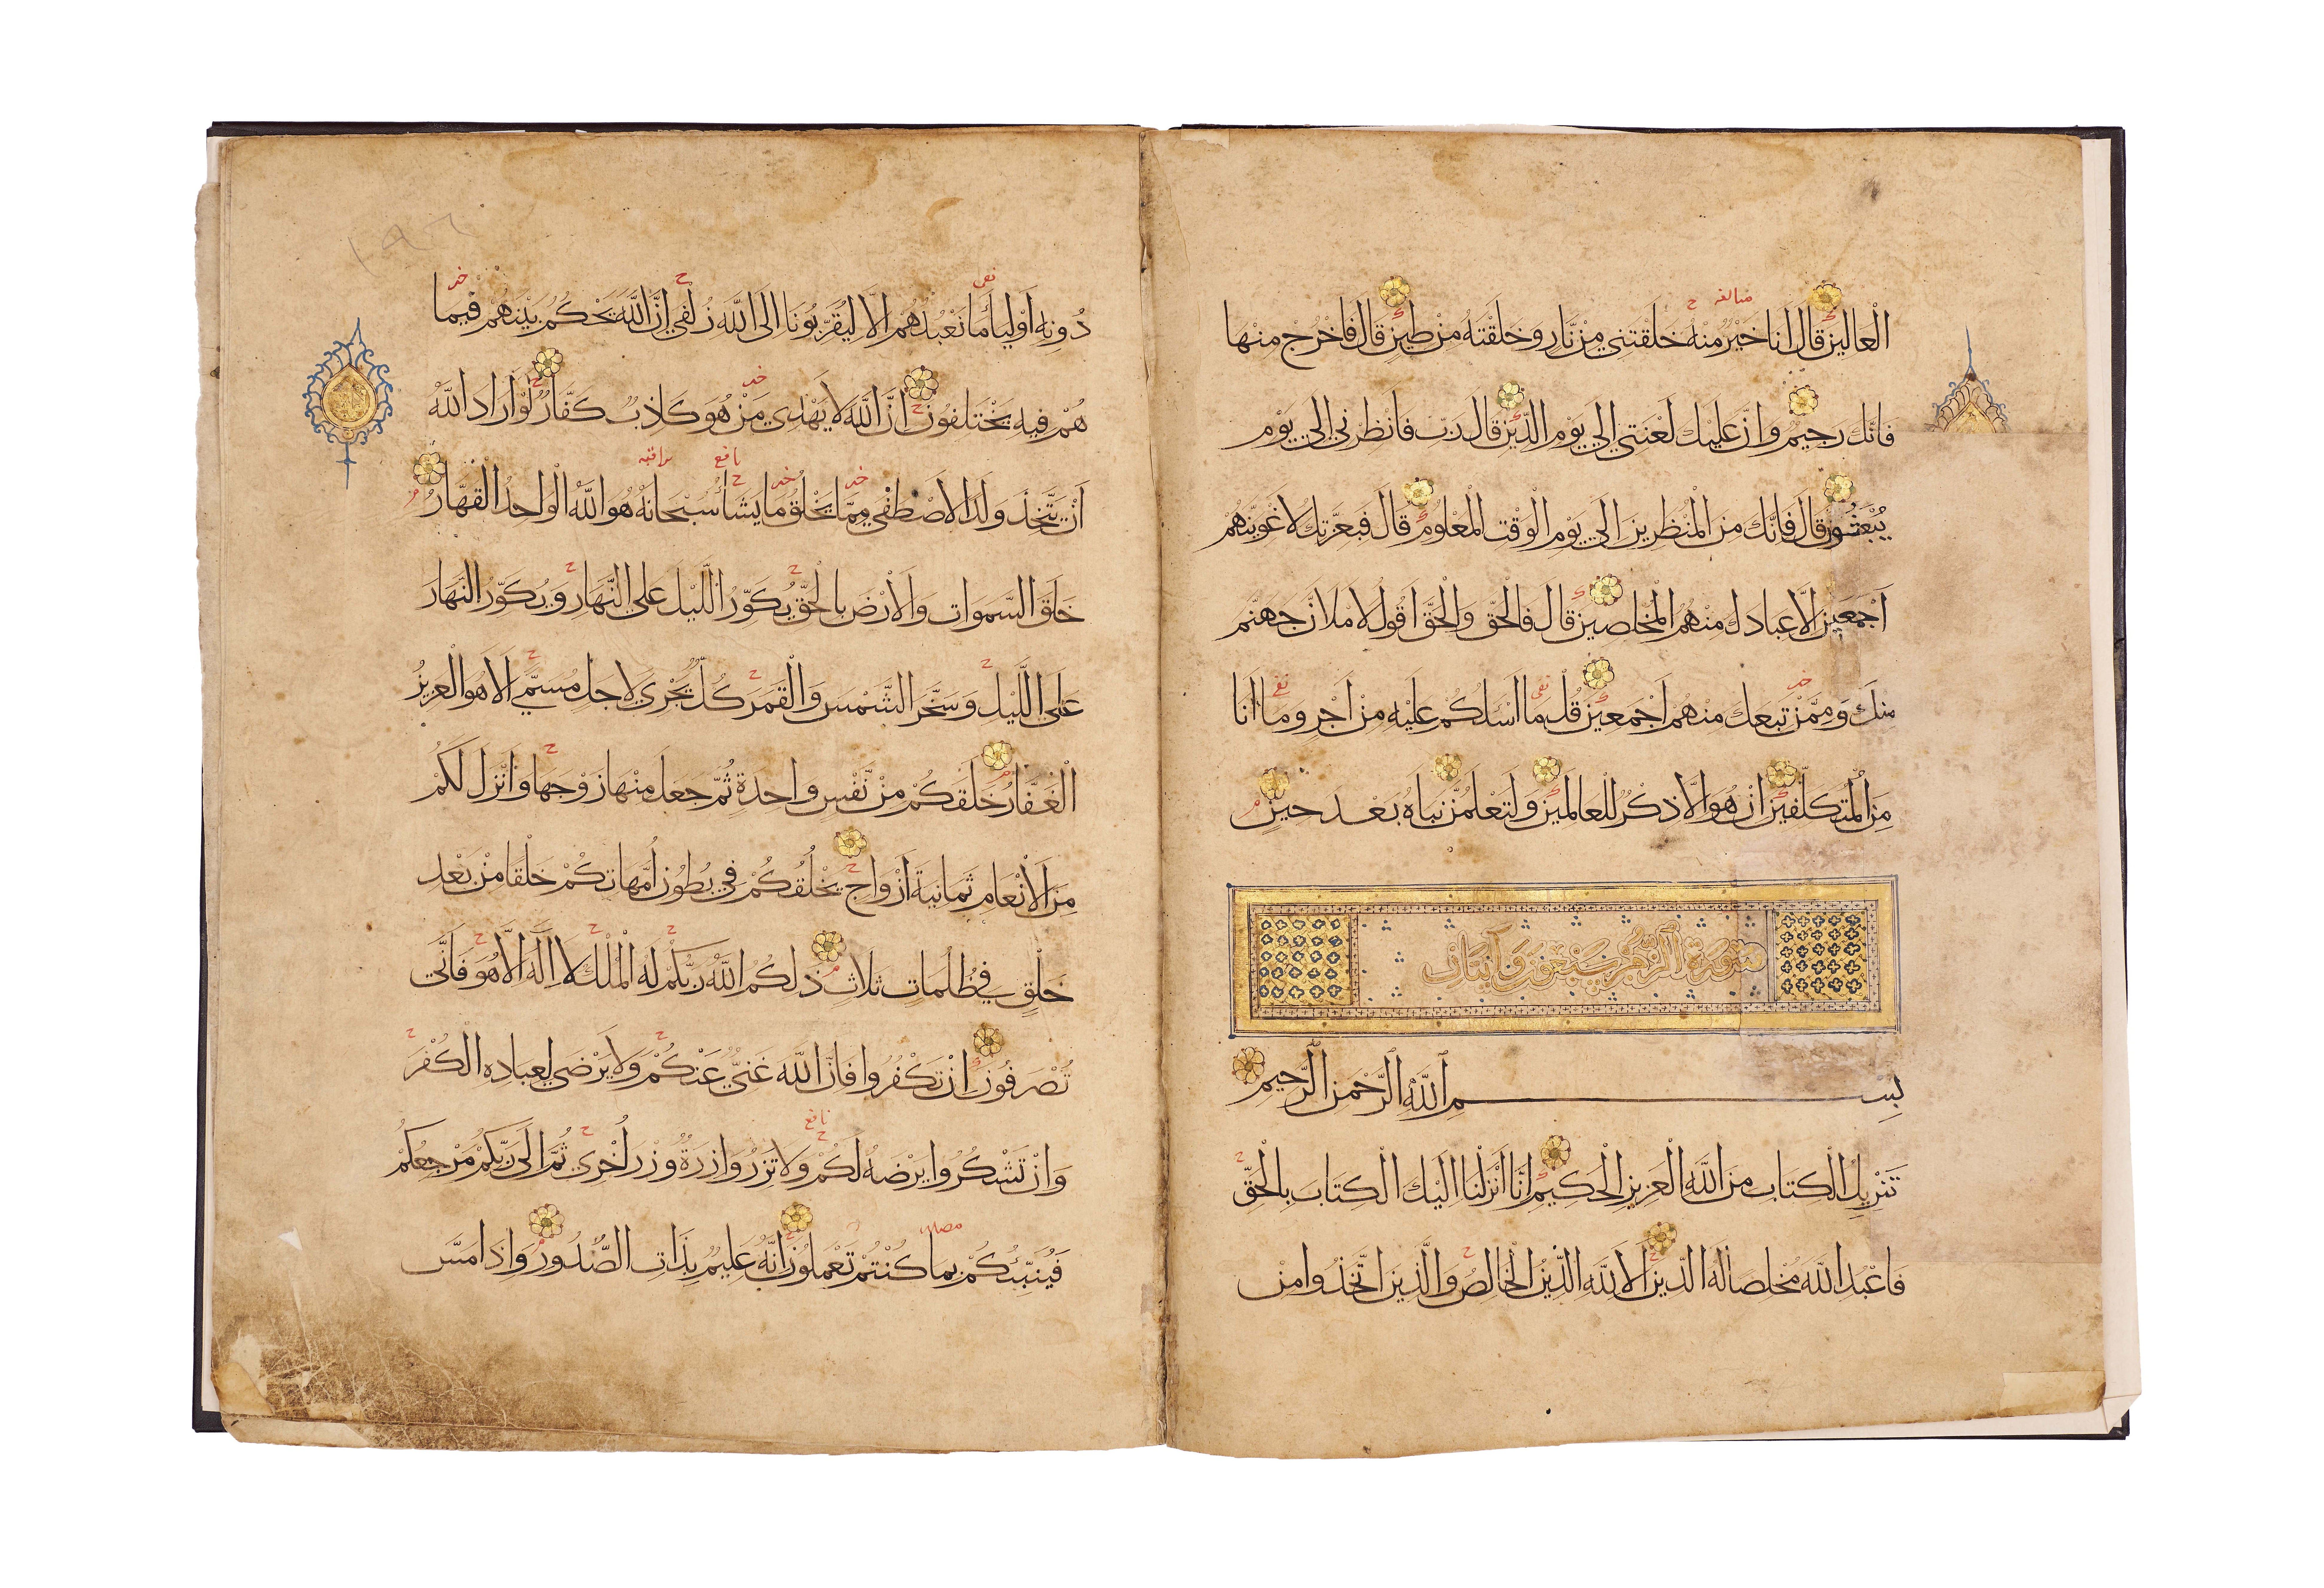 الْعَالِينَ قَالَ أَنَا خَيْرٌ مِنْهُ خَلَقْتَنِي مِنْ نَارٍ وَخَلَقْتَهُ مِنْ طِينٍ قَالَ فَاخْرُجْ مِنْهَا
فَإِنَّكَ رَجِيمٌ وَإِنَّ عَلَيْكَ لَعْنَتِي إِلَى يَوْمِ الدِّينِ قَالَ رَبِّ فَأَنْظِرْنِي إِلَى يَوْمِ
يُبْعَثُونَ قَالَ فَإِنَّكَ مِنَ الْمُنْظَرِينَ إِلَى يَوْمِ الْوَقْتِ الْمَعْلُومِ قَالَ فَبِعِزَّتِكَ لَأُغْوِيَنَّهُمْ
أَجْمَعِينَ إِلَّا عِبَادَكَ مِنْهُمُ الْمُخْلَصِينَ قَالَ فَالْحَقَّ وَالْحَقَّ أَقُولُ لَأَمْلَأَنَّ جَهَنَّمَ
مِنْكَ وَمِمَّنْ تَبِعَكَ مِنْهُمْ أَجْمَعِينَ قُلْ مَا أَسْئَلُكُمْ عَلَيْهِ مِنْ أَجْرٍ وَمَا أَنَا
مِنَ الْمُتَكَلِّفِينَ إِنْ هُوَ إِلَّا ذِكْرٌ لِلْعَالَمِينَ وَلَتَعْلَمُنَّ نَبَأَهُ بَعْدَ حِينٍ
سورة الزمر سبعون وآيتان
بِسْمِ اللَّهِ الرَّحْمَنِ الرَّحِيمِ
تَنْزِيلُ الْكِتَابِ مِنَ اللَّهِ الْعَزِيزِ الْحَكِيمِ إِنَّا أَنْزَلْنَا إِلَيْكَ الْكِتَابَ بِالْحَقِّ
فَاعْبُدِ اللَّهَ مُخْلِصًا لَهُ الدِّينَ أَلَا لِلَّهِ الدِّينُ الْخَالِصُ وَالَّذِينَ اتَّخَذُوا مِنْ
دُونِهِ أَوْلِيَاءَ مَا نَعْبُدُهُمْ إِلَّا لِيُقَرِّبُونَا إِلَى اللَّهِ زُلْفَى إِنَّ اللَّهَ يَحْكُمُ بَيْنَهُمْ فِيمَا
هُمْ فِيهِ يَخْتَلِفُونَ إِنَّ اللَّهَ لَا يَهْدِي مَنْ هُوَ كَاذِبٌ كَفَّارٌ لَوْ أَرَادَ اللَّهُ
أَنْ يَتَّخِذَ وَلَدًا لَاصْطَفَى مِمَّا يَخْلُقُ مَا يَشَاءُ سُبْحَانَهُ هُوَ اللَّهُ الْوَاحِدُ الْقَهَّارُ
خَلَقَ السَّمَوَاتِ وَالْأَرْضَ بِالْحَقِّ يُكَوِّرُ اللَّيْلَ عَلَى النَّهَارِ وَيُكَوِّرُ النَّهَارَ
عَلَى اللَّيْلِ وَسَخَّرَ الشَّمْسَ وَالْقَمَرَ كُلٌّ يَجْرِي لِأَجَلٍ مُسَمًّى أَلَا هُوَ الْعَزِيزُ
الْغَفَّارُ خَلَقَكُمْ مِنْ نَفْسٍ وَاحِدَةٍ ثُمَّ جَعَلَ مِنْهَا زَوْجَهَا وَأَنْزَلَ لَكُمْ
مِنَ الْأَنْعَامِ ثَمَانِيَةَ أَزْوَاجٍ يَخْلُقُكُمْ فِي بُطُونِ أُمَّهَاتِكُمْ خَلْقًا مِنْ بَعْدِ
خَلْقٍ فِي ظُلُمَاتٍ ثَلَاثٍ ذَلِكُمُ اللَّهُ رَبُّكُمْ لَهُ الْمُلْكُ لَا إِلَهَ إِلَّا هُوَ فَأَنَّى
تُصْرَفُونَ إِنْ تَكْفُرُوا فَإِنَّ اللَّهَ غَنِيٌّ عَنْكُمْ وَلَا يَرْضَى لِعِبَادِهِ الْكُفْرَ
وَإِنْ تَشْكُرُوا يَرْضَهُ لَكُمْ وَلَا تَزِرُ وَازِرَةٌ وِزْرَ أُخْرَى ثُمَّ إِلَى رَبِّكُمْ مَرْجِعُكُمْ
فَيُنَبِّئُكُمْ بِمَا كُنْتُمْ تَعْمَلُونَ إِنَّهُ عَلِيمٌ بِذَاتِ الصُّدُورِ وَإِذَا مَسَّ